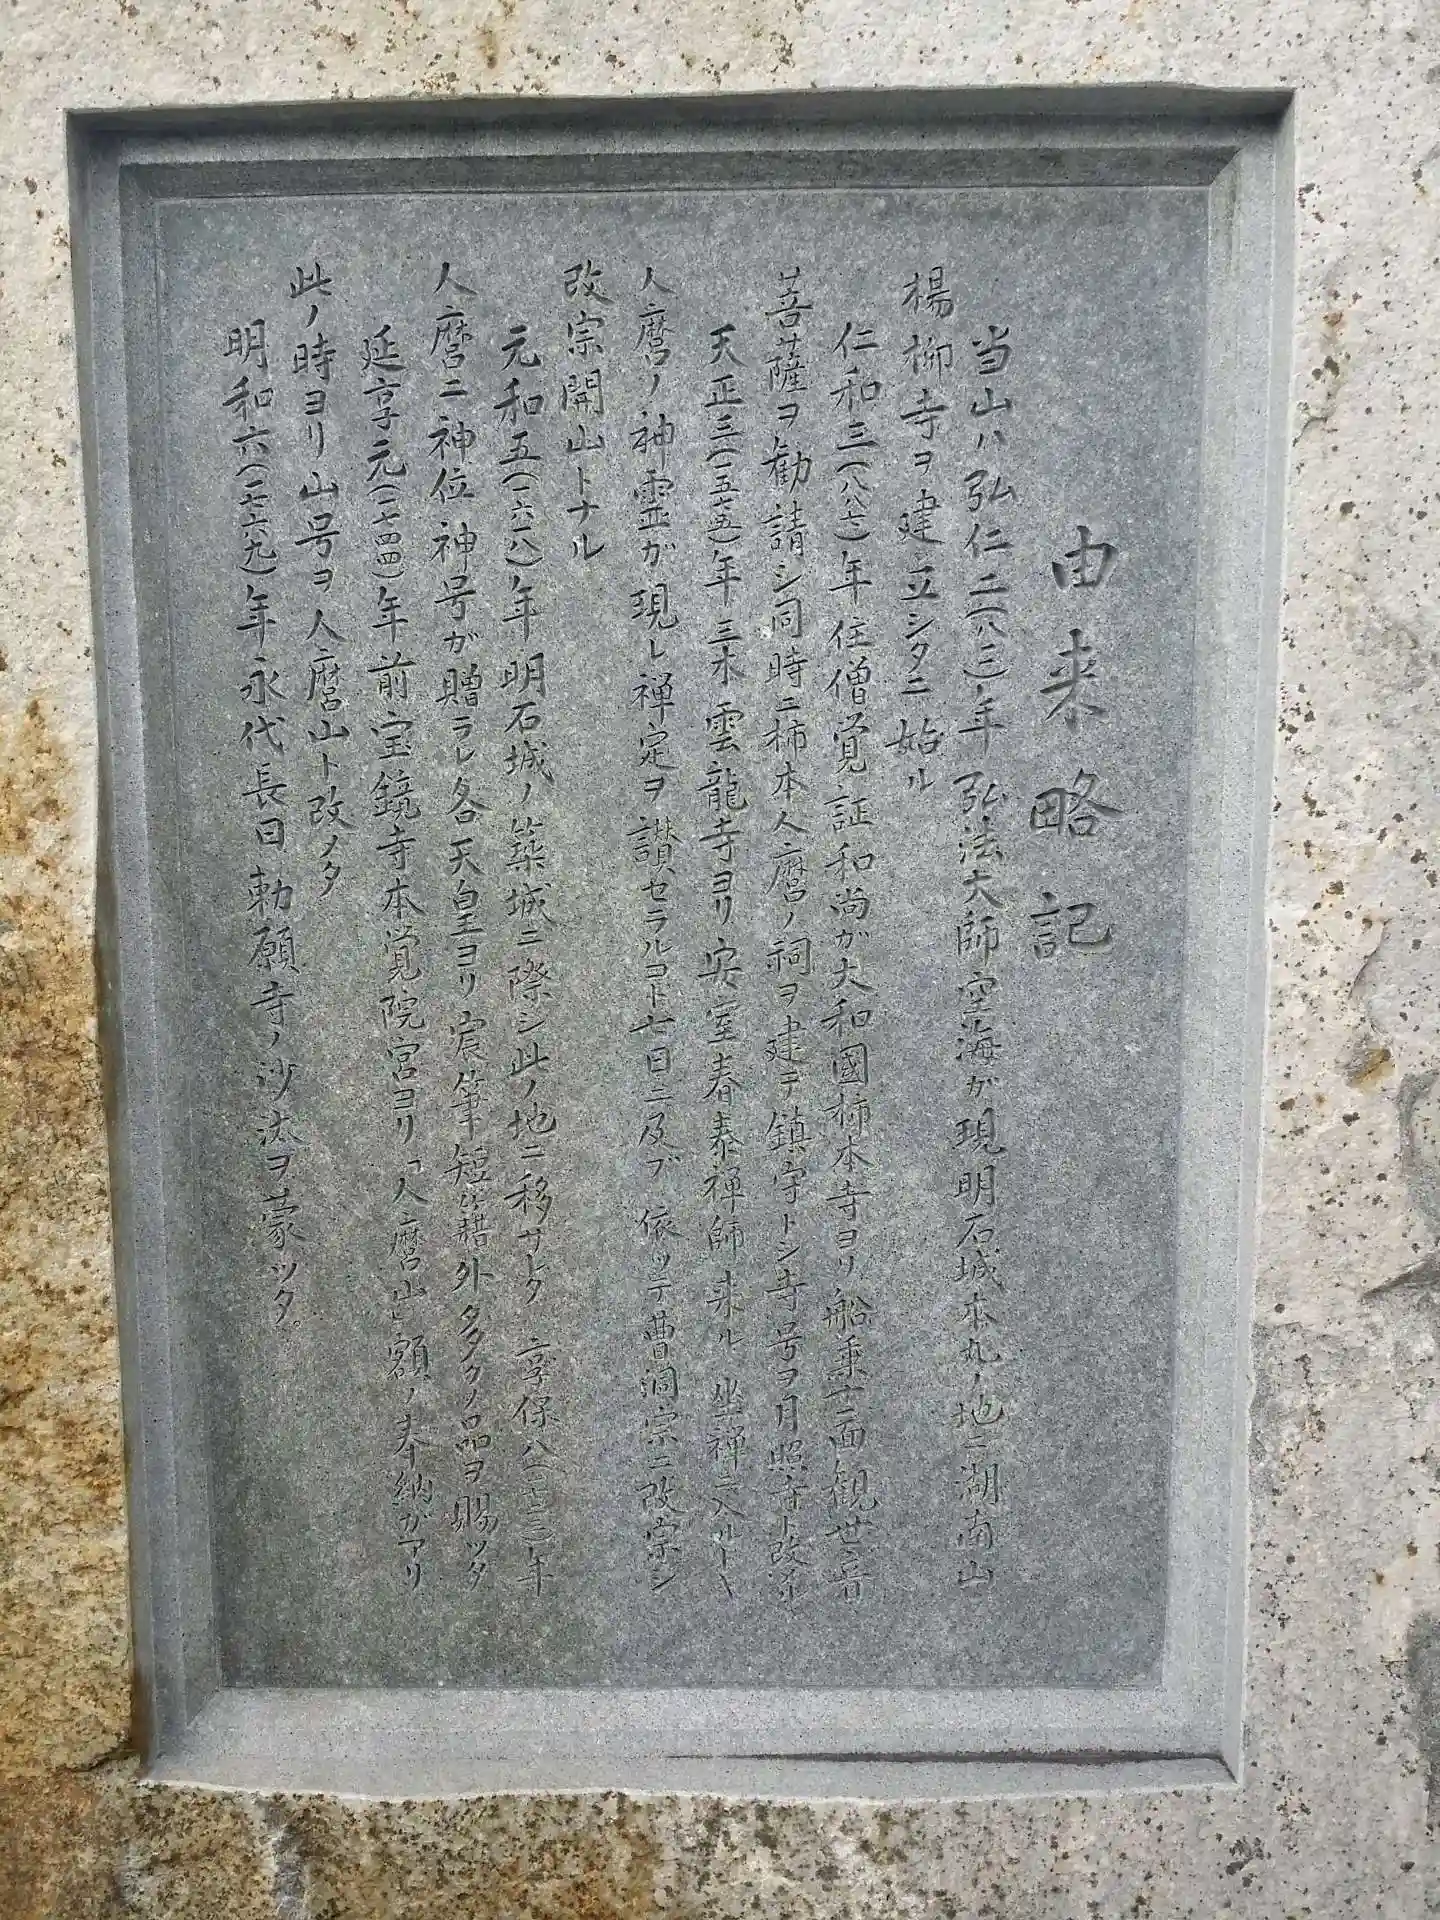 由来略記
当山ハ弘仁二(八三)年弘法大師空海ガ現明石城本丸ノ地ニ湖南山
楊柳寺ヲ建立シタニ始ル
仁和三(八八七)年住僧覚証和尚ガ大和國柿本寺ヨリ船乗十一面観世音
菩薩ヲ勧請シ同時ニ柿本人麿ノ祠ヲ建テ鎮守トシ寺号ヲ月照寺ト改ム
天正三(一五七五)年三木雲龍寺ヨリ安室春泰禅師来ル 坐禅ニ入ルト
人麿ノ神霊ガ現レ禅定ヲ讃セラルヽコト七日ニ及ブ 依ッテ曹洞宗ニ改宗シ
改宗開山トナル
元和五(一六一八)年明石城ノ築城ニ際シ此ノ地ニ移サレタ 享保八(一七二三)年
人麿ニ神位神号ガ贈ラレ各天皇ヨリ宸筆短籍外タクノ品ヲ賜ッタ
延享元(一七四四)年前宝鏡寺本覚院宮ヨリ「人麿山」額ノ奉納ガアリ
此ノ時ヨリ山号ヲ人麿山ト改メタ
明和六(一七六九)年永代長日勅願寺ノ沙汰ヲ蒙ッタ。